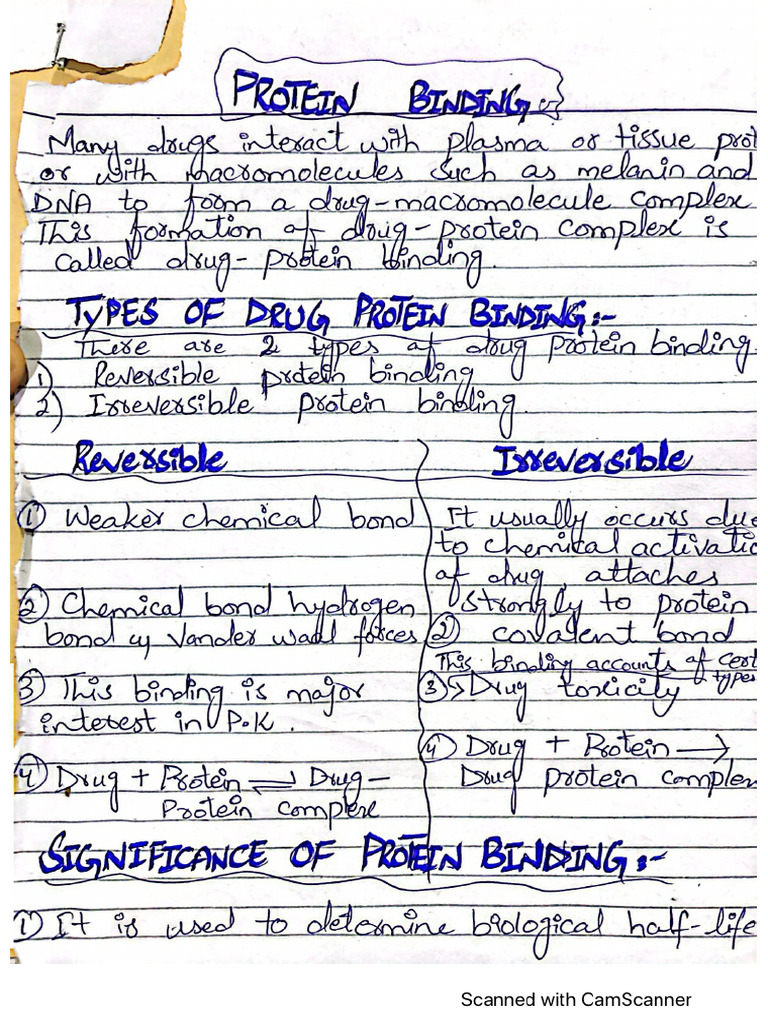 PROTEIN BINDING :-
Many drugs interact with plasma or tissue prot
or with macromolecules such as melanin and
DNA to form a drug-macromolecule complex
This formation of drug-protein complex is
called drug-protein binding.
TYPES OF DRUG PROTEIN BINDING:-
There are 2 types of drug protein binding.
1) Reversible protein binding
2) Irreversible protein binding.
Reversible
① Weaker chemical bond
② Chemical bond hydrogen
bond Vander waal forces
③ This binding is major
interest in P.K.
④ Drug + Protein ⇌ Drug-
Protein complex
Irreversible
It usually occurs due
to chemical activatio
of drug, attaches
strongly to protein
② covalent bond
This binding accounts of cert
types
③ ↳ Drug toxicity
④ Drug + Protein →
Drug protein complex
SIGNIFICANCE OF PROTEIN BINDING:-
① It is used to determine biological half-life
Scanned with CamScanner